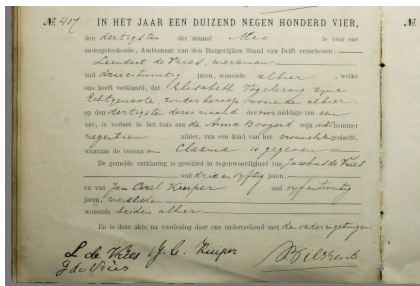 № 417 IN HET JAAR EEN DUIZEND NEGEN HONDERD VIER,
den dertigsten der maand Mei is voor ons
ondergeteekende, Ambtenaar van den Burgerlijken Stand van Delft verschenen:
Leendert de Vries, werkman
oud drieentwintig jaren, wonende alhier, welke
ons heeft verklaard, dat Elisabeth Vogelezang zijne
Echtgenoote, zonder beroep, wonende alhier
op den dertigsten dezer maand des voormiddags ten een
ure, is verlost in het huis aan de Anna Boogerd wijk nummer
negentien alhier, van een kind van het vrouwelijk geslacht,
waaraan de voornaam Clazina is gegeven
De gemelde verklaring is geschied in tegenwoordigheid van Jacobus de Vries
oud drie en vijftig jaren,
en van Jan Carel Kuiper oud vijfentwintig
jaren, werklieden
wonende beiden alhier
En is deze akte na voorlezing door ons onderteekend met de onder
L de Vries J. C. Kuiper
J de Vries
№